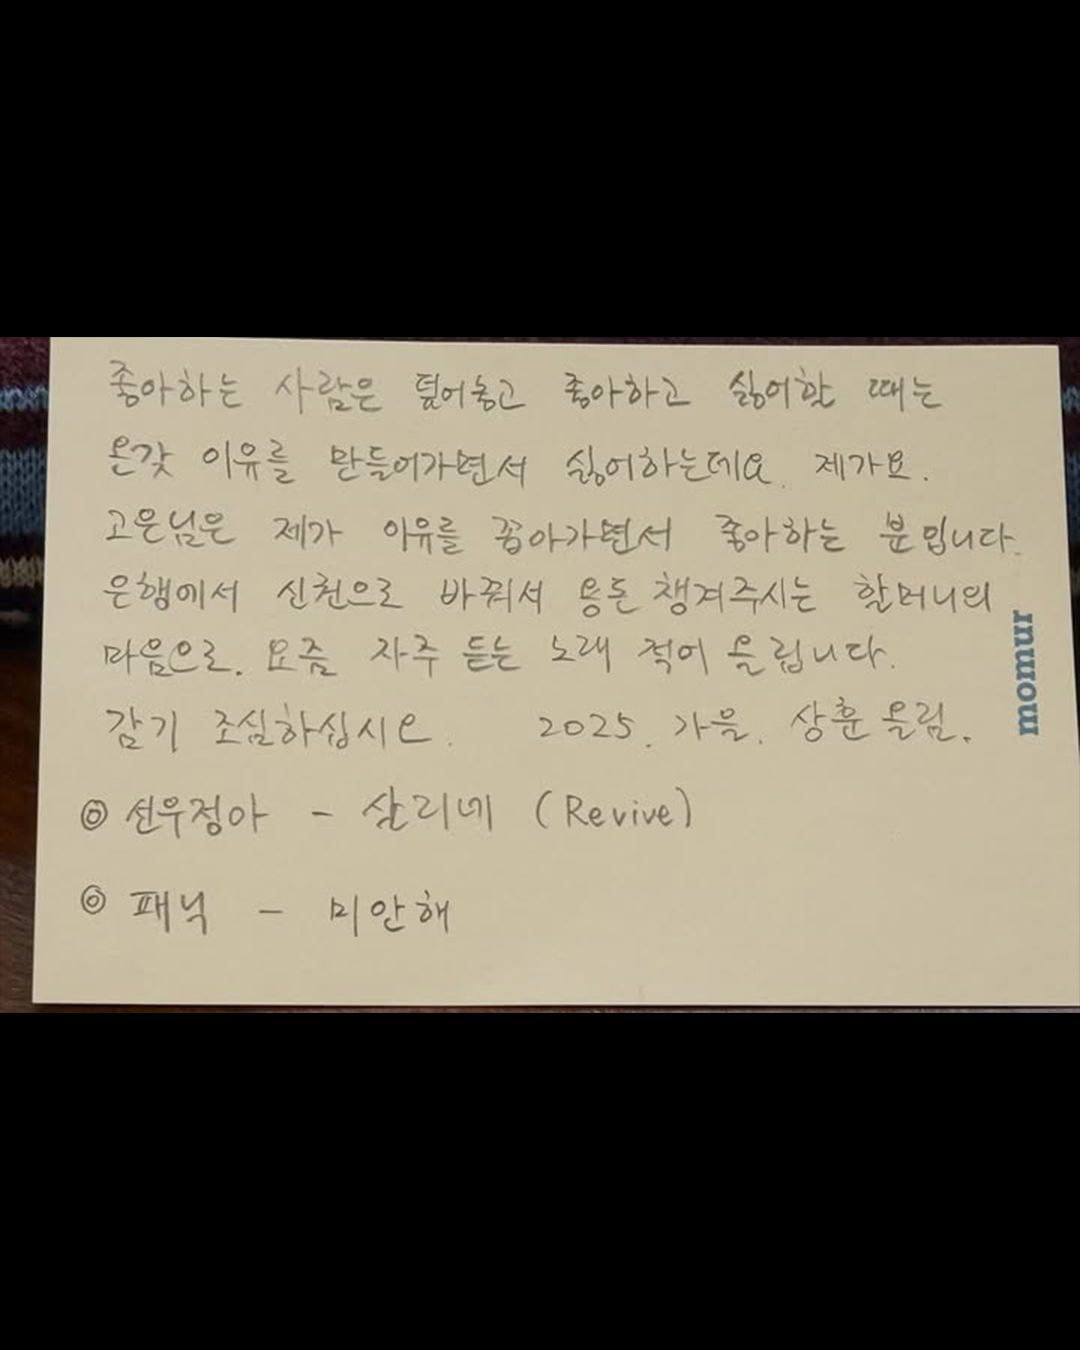 좋아하는 사람은 덮어놓고 좋아하고 싫어할 때는
온갖 이유를 만들어가면서 싫어하는데요. 제가요.
고은님은 제가 이유를 꼽아가면서 좋아하는 분입니다.
은행에서 신권으로 바꿔서 용돈 챙겨주시는 할머니의
마음으로. 요즘 자주 듣는 노래 적어 올립니다.
감기 조심하십시오. 2025. 가을. 상훈 올림.
◎ 선우정아 - 살리네 (Revive)
◎ 패닉 - 미안해
momur